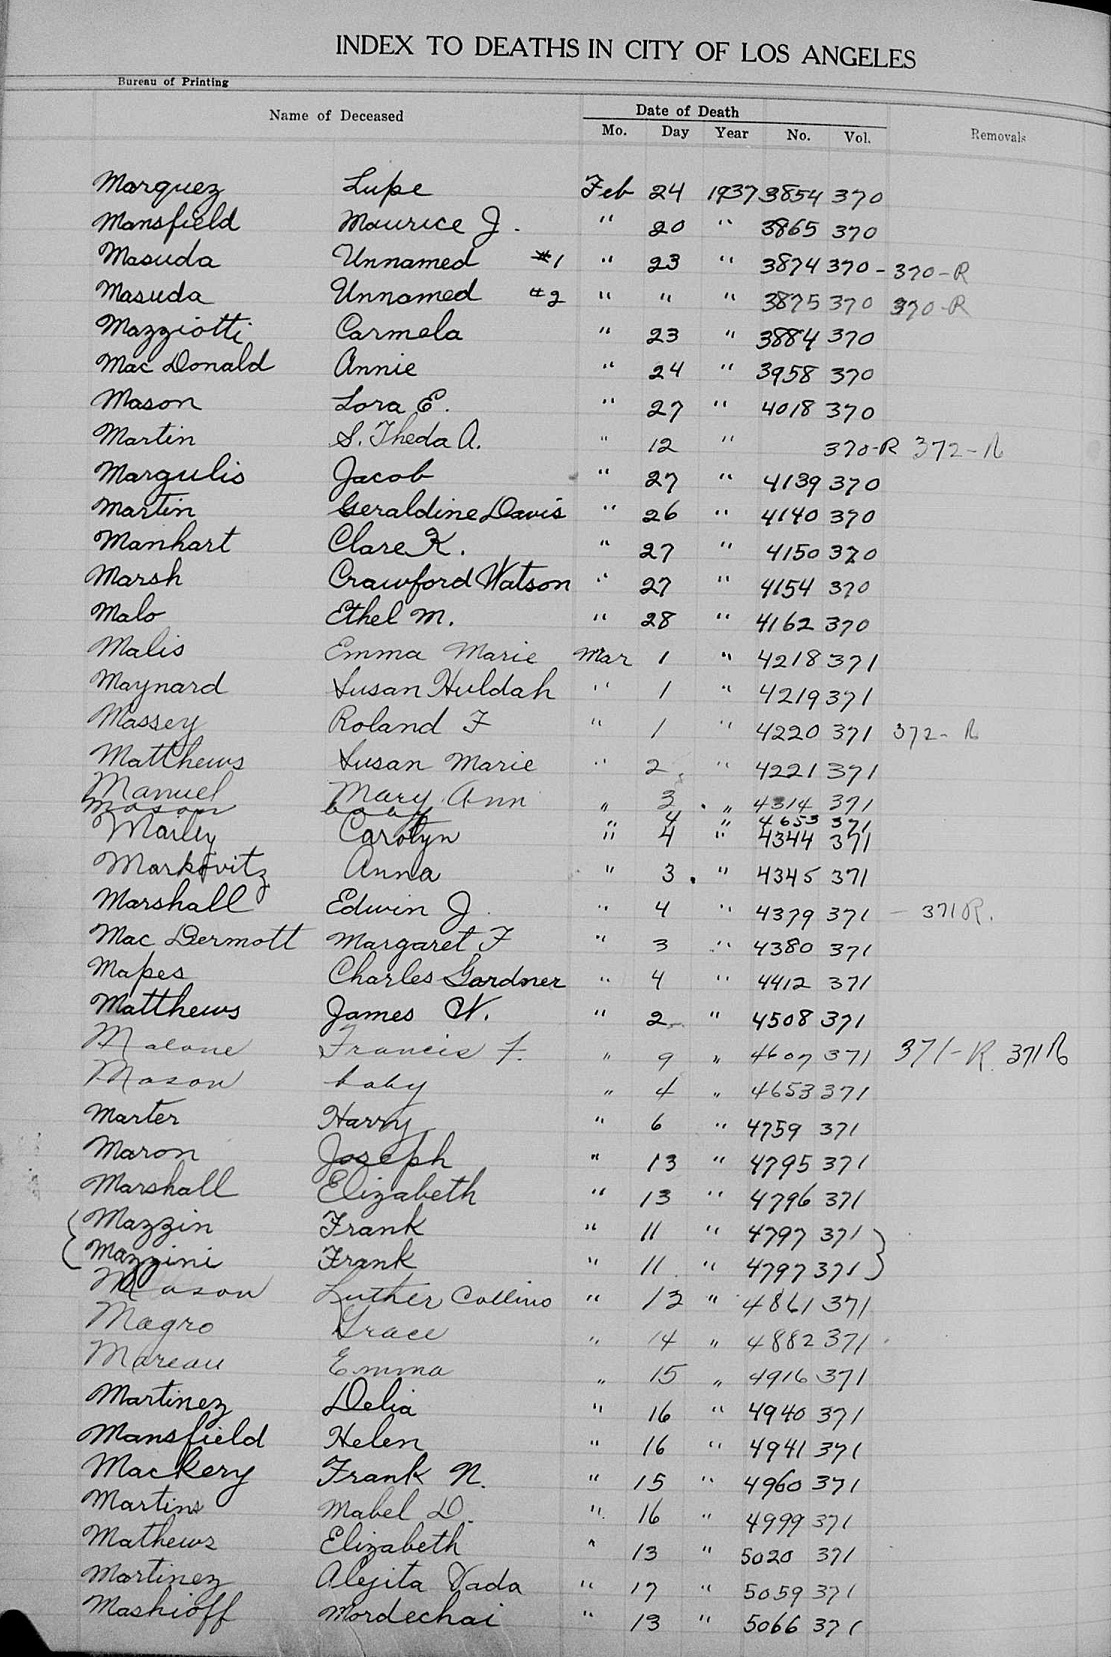 INDEX TO DEATHS IN CITY OF LOS ANGELES
Bureau of Printing
Name of Deceased Date of Death Removals
Mo. Day Year No. Vol.
Marquez Lupe Feb 24 1937 3854 370
Mansfield Maurice J. " 20 " 3865 370
Masuda Unnamed #1 " 23 " 3874 370 - 370-R
Masuda Unnamed #2 " " " 3875 370 370-R
Mazziotti Carmela " 23 " 3884 370
Mac Donald Annie " 24 " 3958 370
Mason Lora E. " 27 " 4018 370
Martin S. Theda A. " 12 " 370-R 372-R
Margulis Jacob " 27 " 4139 370
Martin Geraldine Davis " 26 " 4140 370
Manhart Clare K. " 27 " 4150 370
Marsh Crawford Watson " 27 " 4154 370
Malo Ethel M. " 28 " 4162 370
Malis Emma Marie Mar 1 " 4218 371
Maynard Susan Huldah " 1 " 4219 371
Massey Roland F " 1 " 4220 371 372-R
Matthews Susan Marie " 2 " 4221 371
Manuel Mary Ann " 3 " 4314 371
Mason baby " 4 " 4653 371
Marley Carolyn " 4 " 4344 371
Markovitz Anna " 3 " 4345 371
Marshall Edwin J. " 4 " 4379 371 - 371R.
Mac Dermott Margaret F " 3 " 4380 371
Mapes Charles Gardner " 4 " 4412 371
Matthews James W. " 2 " 4508 371
Malone Francis F. " 9 " 4607 371 371-R 371R
Mason baby " 4 " 4653 371
Marter Harry " 6 " 4759 371
Maron Joseph " 13 " 4795 371
Marshall Elizabeth " 13 " 4796 371
{ Mazzin Frank " 11 " 4797 371 }
{ Mazzini Frank " 11 " 4797 371 }
Mason Luther Collins " 13 " 4861 371
Magro Grace " 14 " 4882 371
Mareau Emma " 15 " 4916 371
Martinez Delia " 16 " 4940 371
Mansfield Helen " 16 " 4941 371
Mackery Frank N. " 15 " 4960 371
Martins Mabel D. " 16 " 4999 371
Mathews Elizabeth " 13 " 5020 371
Martinez Alejita Vada " 17 " 5059 371
Mashioff Mordechai " 13 " 5066 371